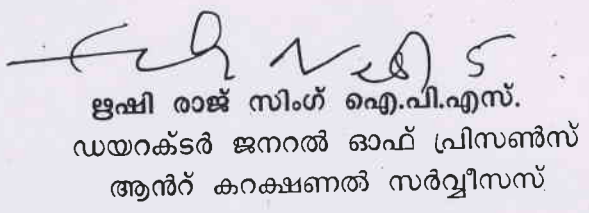 ഋഷി രാജ് സിംഗ് ഐ.പി.എസ്.
ഡയറക്ടർ ജനറൽ ഓഫ് പ്രിസൺസ്
ആന്റ് കറക്ഷണൽ സർവ്വീസസ്